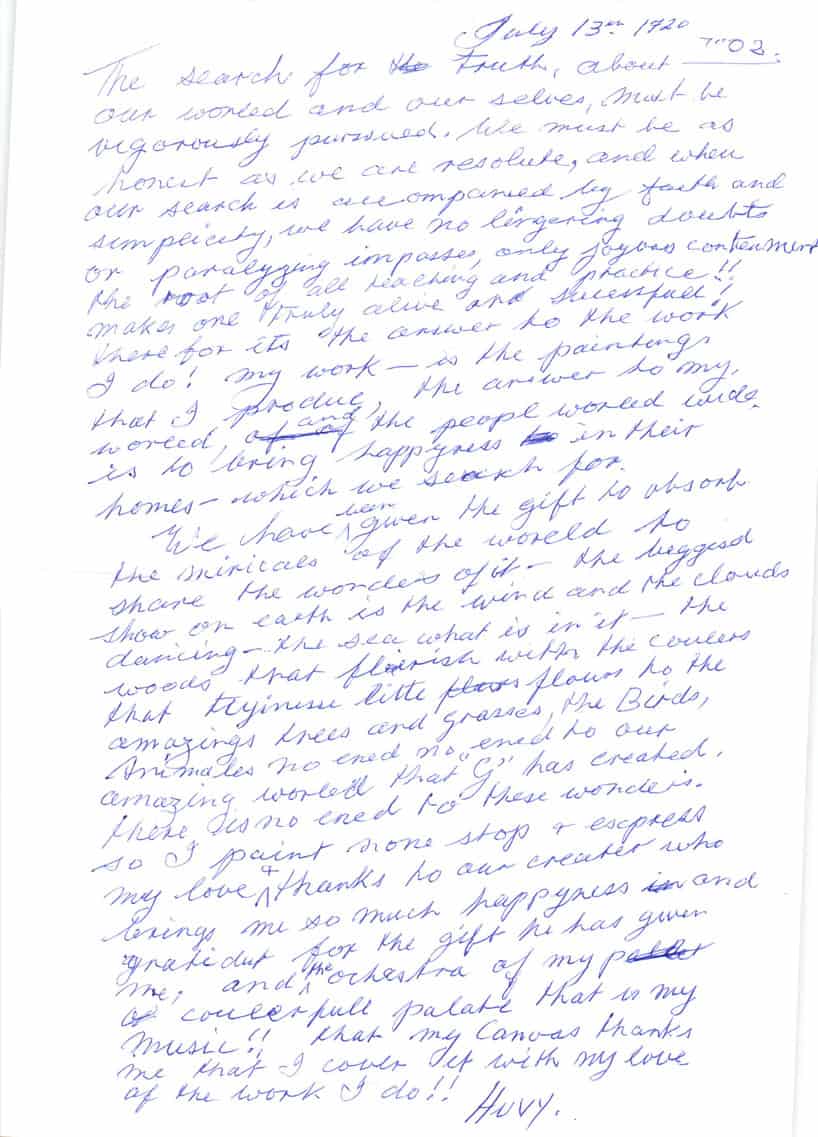 July 13th 1920
"03.
The search for the Truth, about
our worled and our selves, must be
vigorously pursued. We must be as
honest as we are resolute, and when
our search is accompanied by faith and
simplicity, we have no lingering doubts
or paralyzing impasses, only joyous contenment
the root of all teaching and practice!!
makes one truly alive and sucessful!
there for its the answer to the work
I do! my work — is the paintings
that I produce, the answer to my
worled, and the people worled wide.
is to bring happyness in their
homes — which we search for.
We have been given the gift to absorb
the miricaes of the woreld to
share the wonders of it — the biggisd
show on earth is the wind and the clouds
dancing — the sea what is in it — the
woods that flierish with the coulers
that tiyinesse litte flours to the
amazings trees and grasses, the Birds,
Animales no ened no ened to our
amazing worled that "G" has created.
there is no ened to these wonders.
so I paint none stop & express
my love & thanks to our creater who
brings me so much happyness and
gratidut for the gift he has given
me, and the ochestra of my
coulerfull palate that is my
music!! that my Canvas thanks
me that I cover it with my love
of the work I do!!
HUVY.